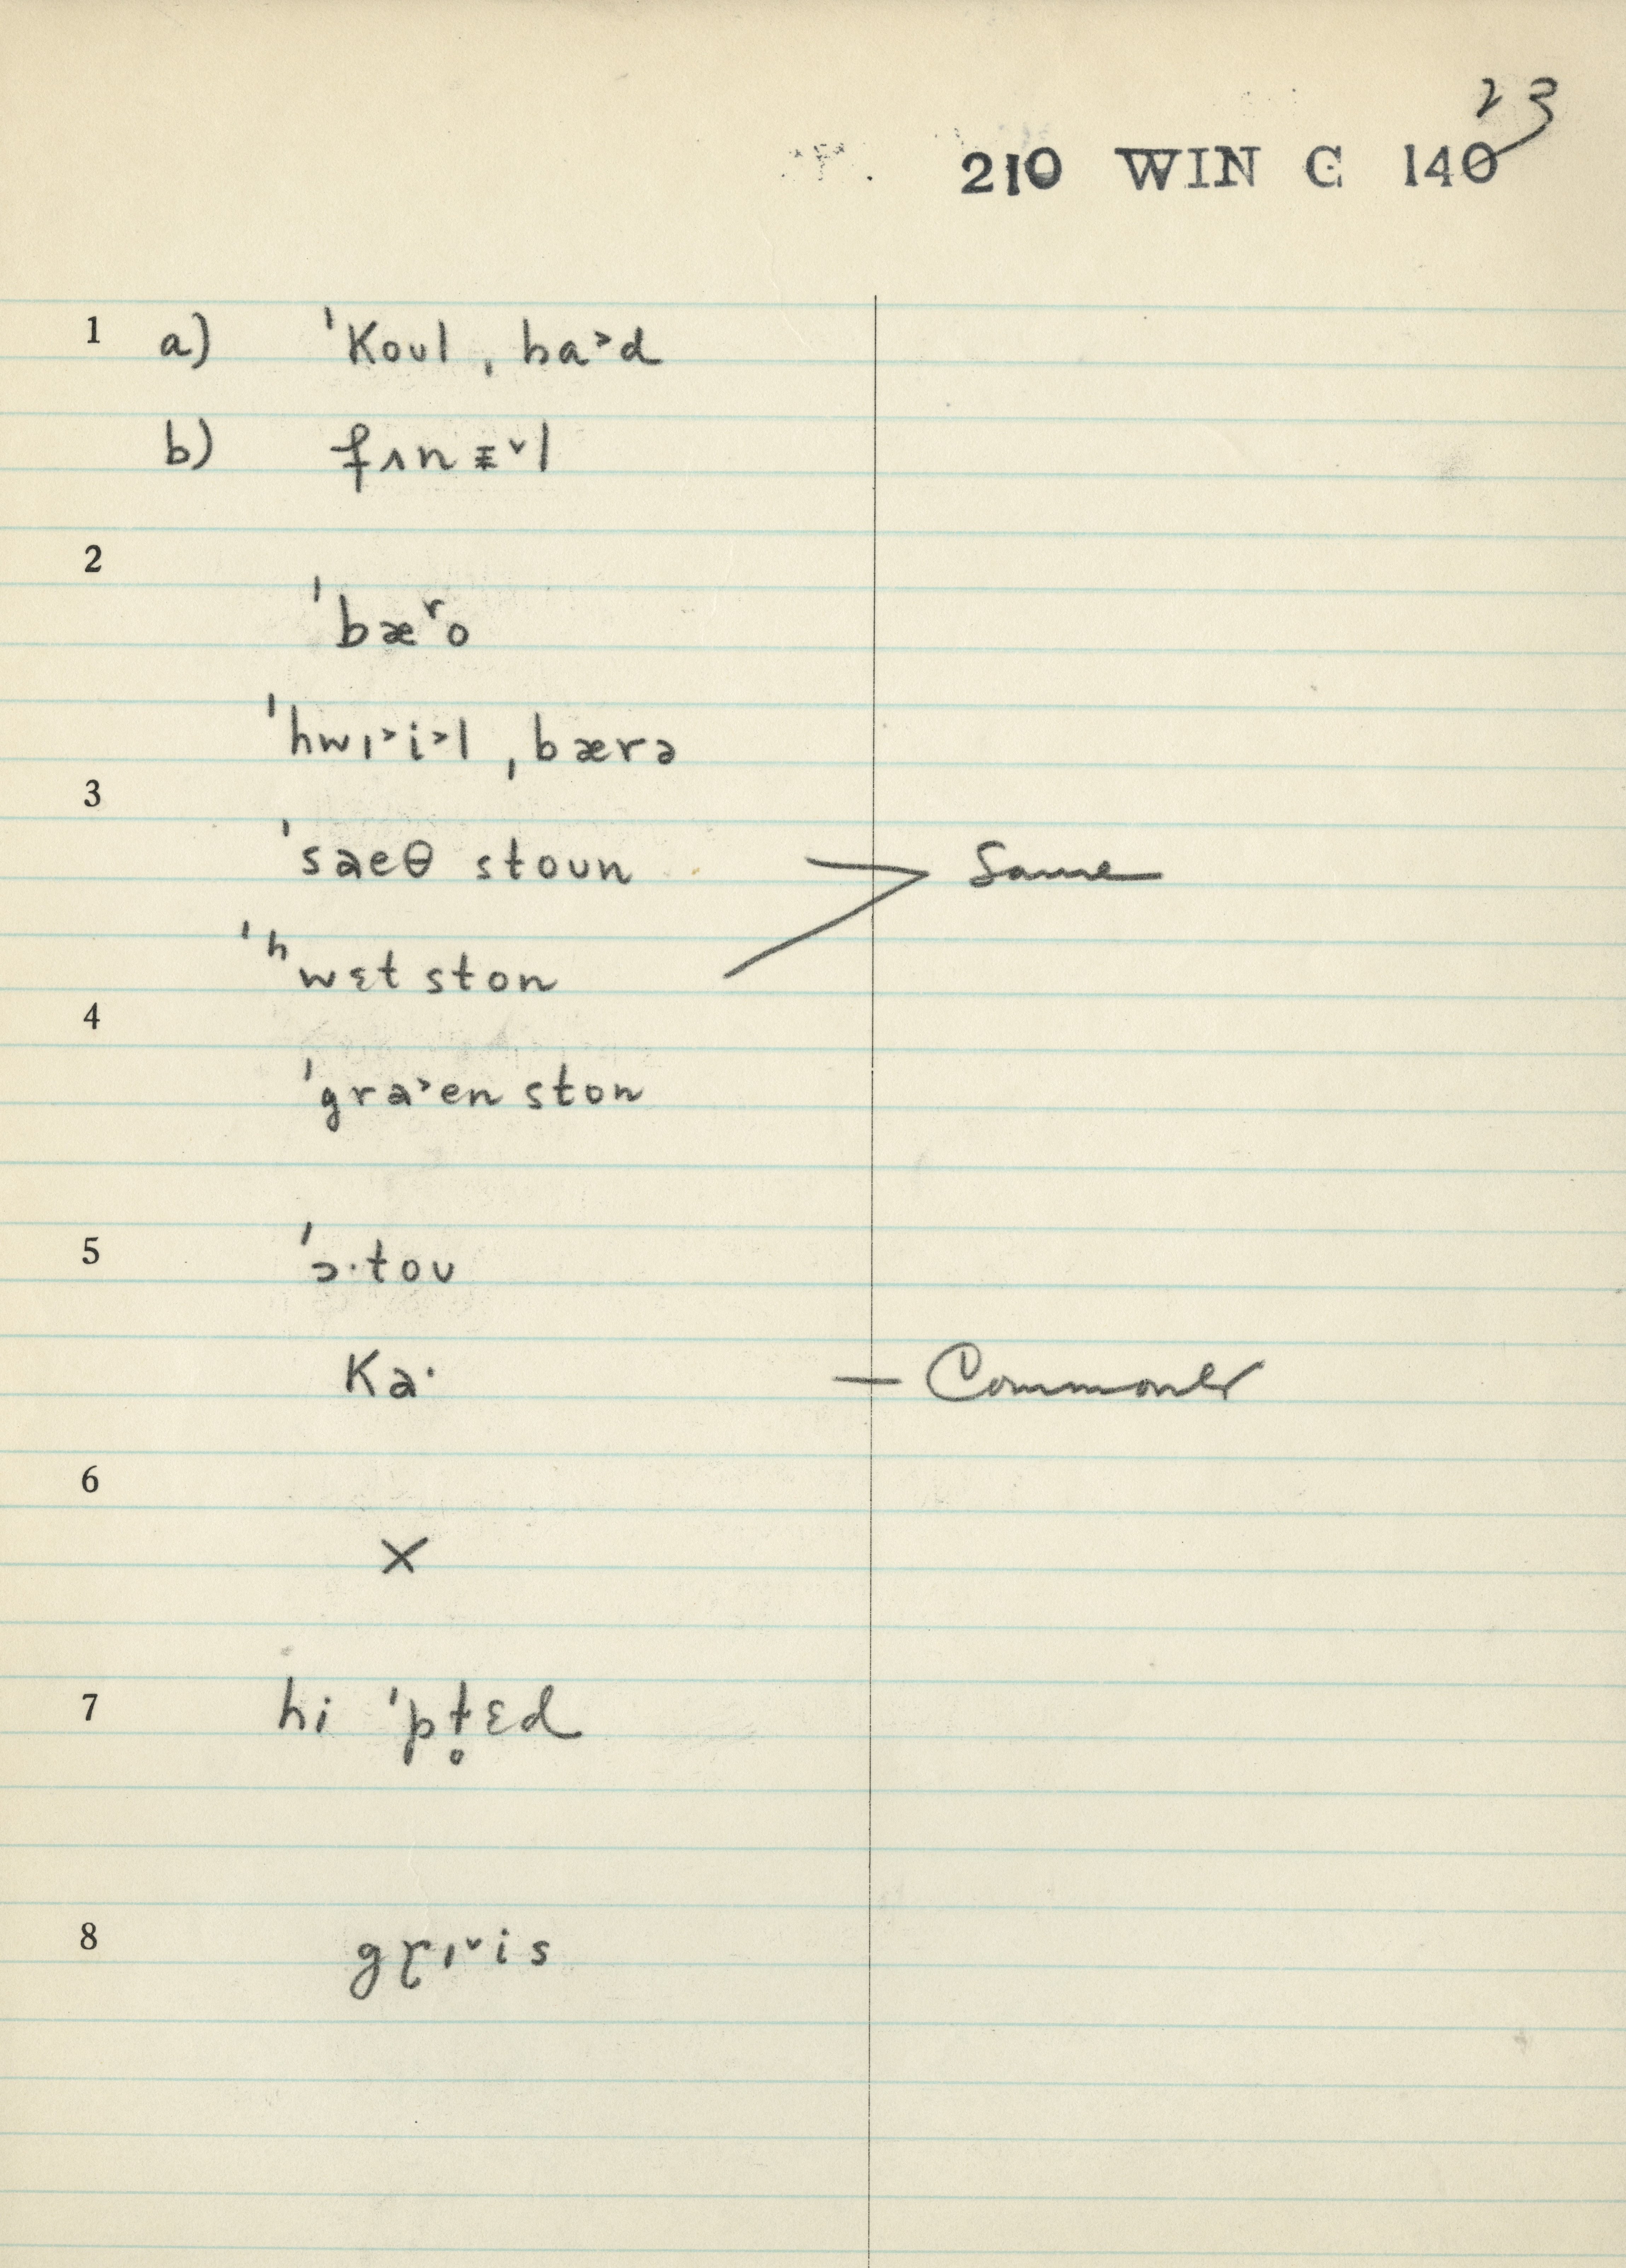 23
210 WIN C 140
1 a) ˈKoul ˌba˃d
b) fʌnᵻ˅l
2
ˈbæʳo
ˈhwɪ˃i˃l ˌbærə
3
ˈsaeθ stoun Same
ˈʰwɛt ston
4
ˈgra˃en ston
5 ˈɔ·tou
Ka· — Commoner
6
X
7 hi ˈpt̥ɛd
8 gɽɪ˅is